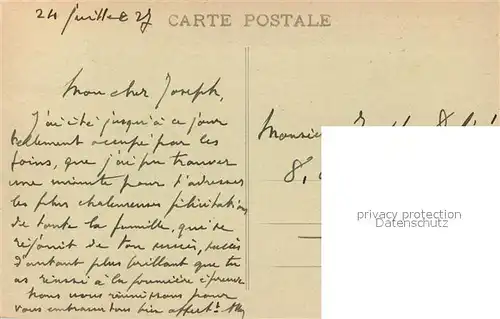 24 juillet 27
CARTE POSTALE
Mon cher Joseph,
J'ai été jusqu'à ce jour
tellement occupé par les
foins, que j'ai pu trouver
une minute pour t'adresser
les plus chaleureuses félicitations
de toute la famille, qui se
réjouit de ton succès, succès
d'autant plus brillant que tu
as réussi à la première épreuve
Nous nous réunissons pour
vous embrasser tous bien affect.t
Monsieur
8,
privacy protection
Datenschutz